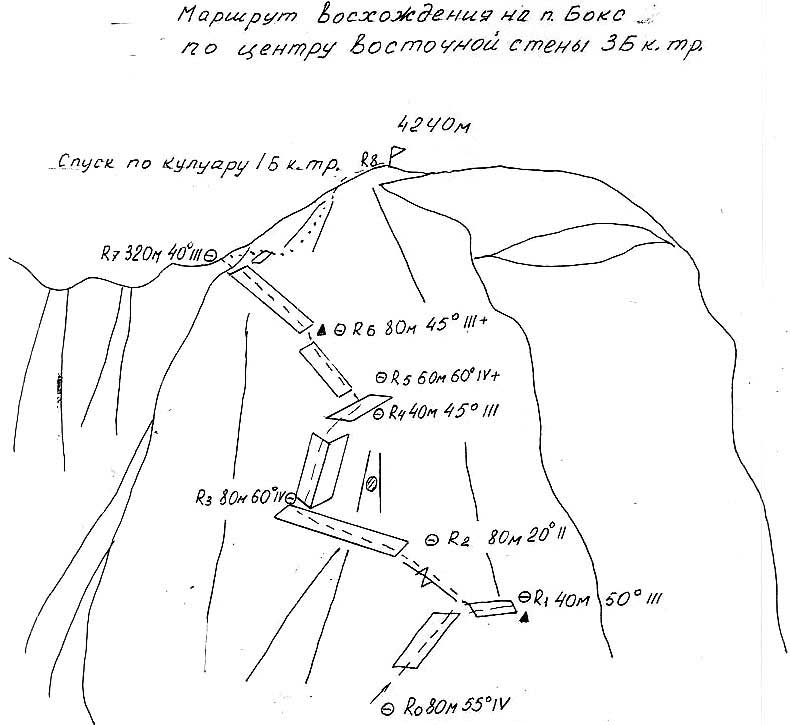 Маршрут восхождения на п. Бокс
по центру восточной стены 3Б к. тр.
4240м
Спуск по кулуару 1Б к. тр. R8
R7 320м 40° III
R6 80м 45° III+
R5 60м 60° IV+
R4 40м 45° III
R3 80м 60° IV
R2 80м 20° II
R1 40м 50° III
R0 80м 55° IV